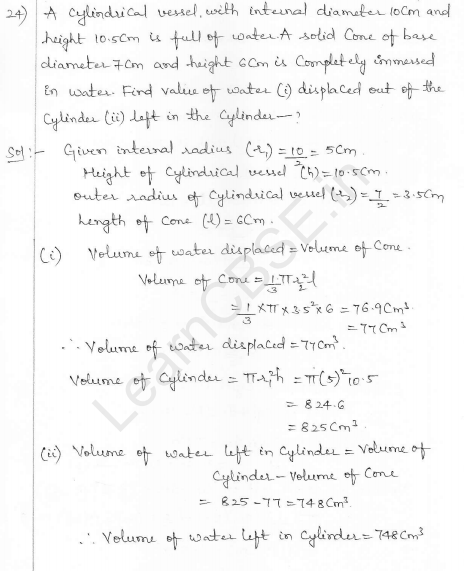 24) A Cylindrical vessel, with internal diameter 10cm and
height 10.5cm is full of water. A solid Cone of base
diameter 7cm and height 6cm is Completely immersed
in water. Find value of water (i) displaced out of the
Cylinder (ii) left in the Cylinder—?
Sol:- Given internal radius (r₁) = 10/2 = 5cm.
Height of Cylindrical vessel (h) = 10.5cm.
Outer radius of Cylindrical vessel (r₂) = 7/2 = 3.5cm
Length of Cone (l) = 6cm.
(i) Volume of water displaced = Volume of Cone.
Volume of Cone = 1/3 πr₂²l
= 1/3 × π × 3.5² × 6 = 76.9cm³
= 77cm³
∴ Volume of water displaced = 77cm³.
Volume of Cylinder = πr₁²h = π(5)² 10.5
= 824.6
= 825cm³.
(ii) Volume of water left in Cylinder = Volume of
Cylinder - Volume of Cone
= 825 - 77 = 748cm³.
∴ Volume of water left in Cylinder = 748cm³
LearnCBSE.in